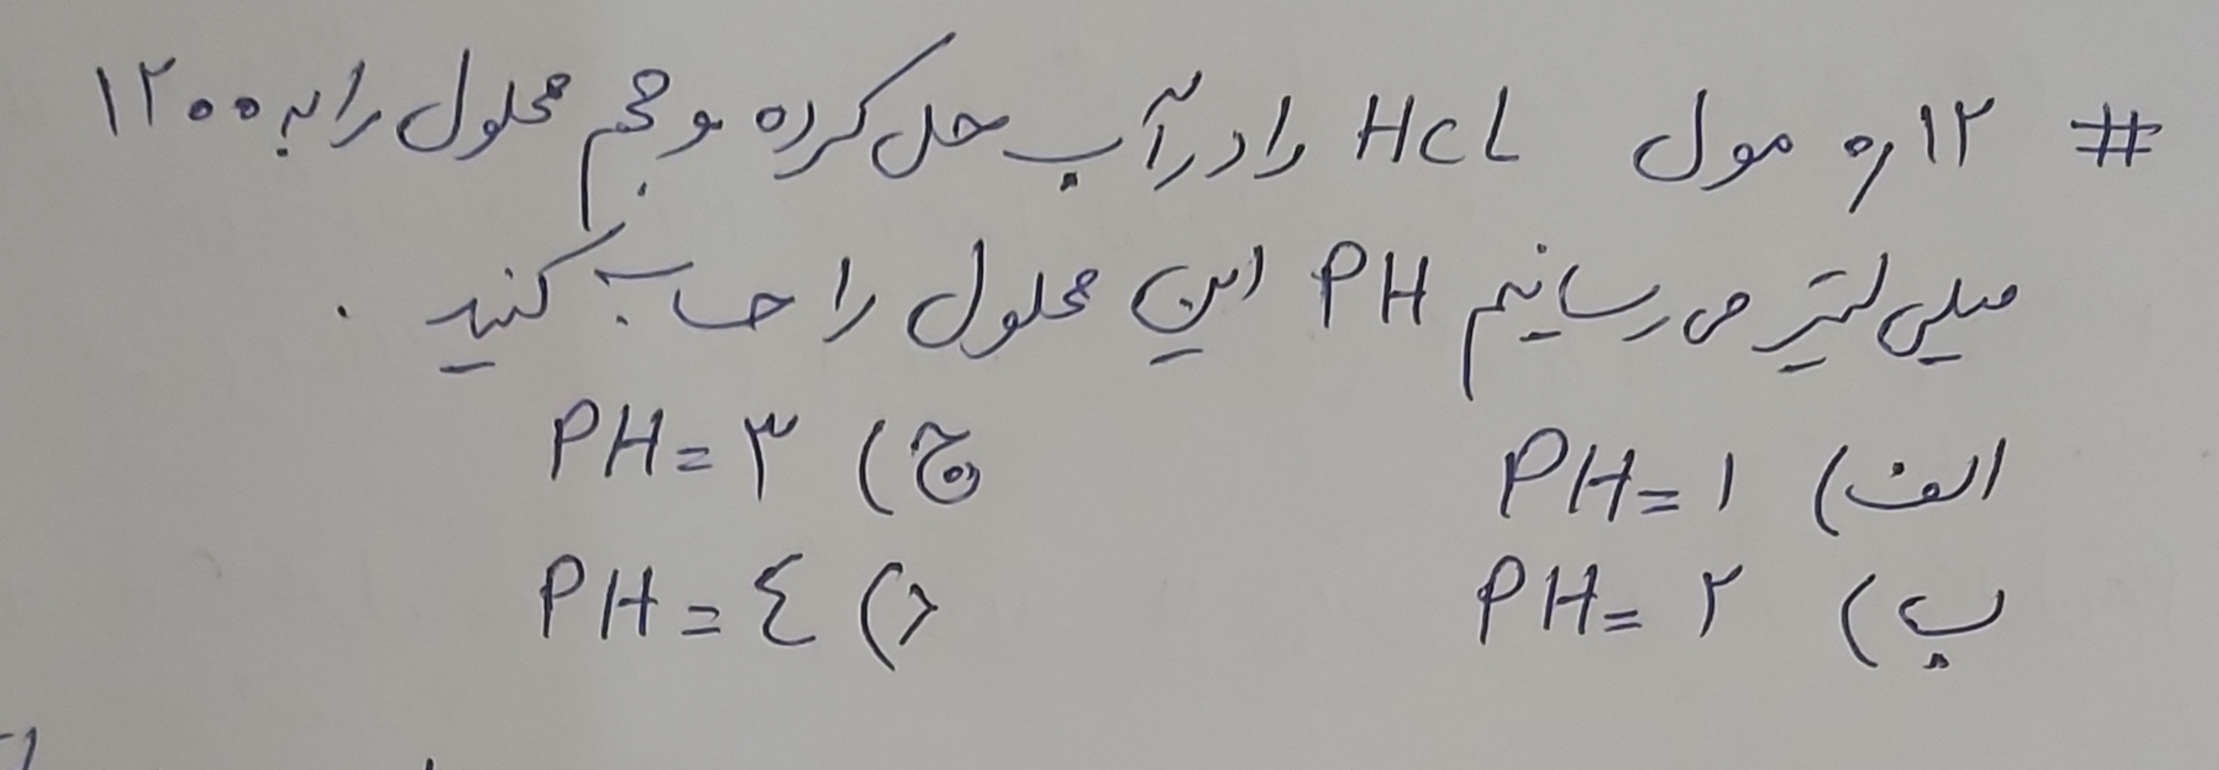 # ۰٫۱۲ مول HCL را در آب حل کرده و حجم محلول را به ۱۲۰۰
میلی لیتر می رسانیم PH این محلول را حساب کنید .
الف) PH=۱ ج) PH=۳
ب) PH=۲ د) PH=٤